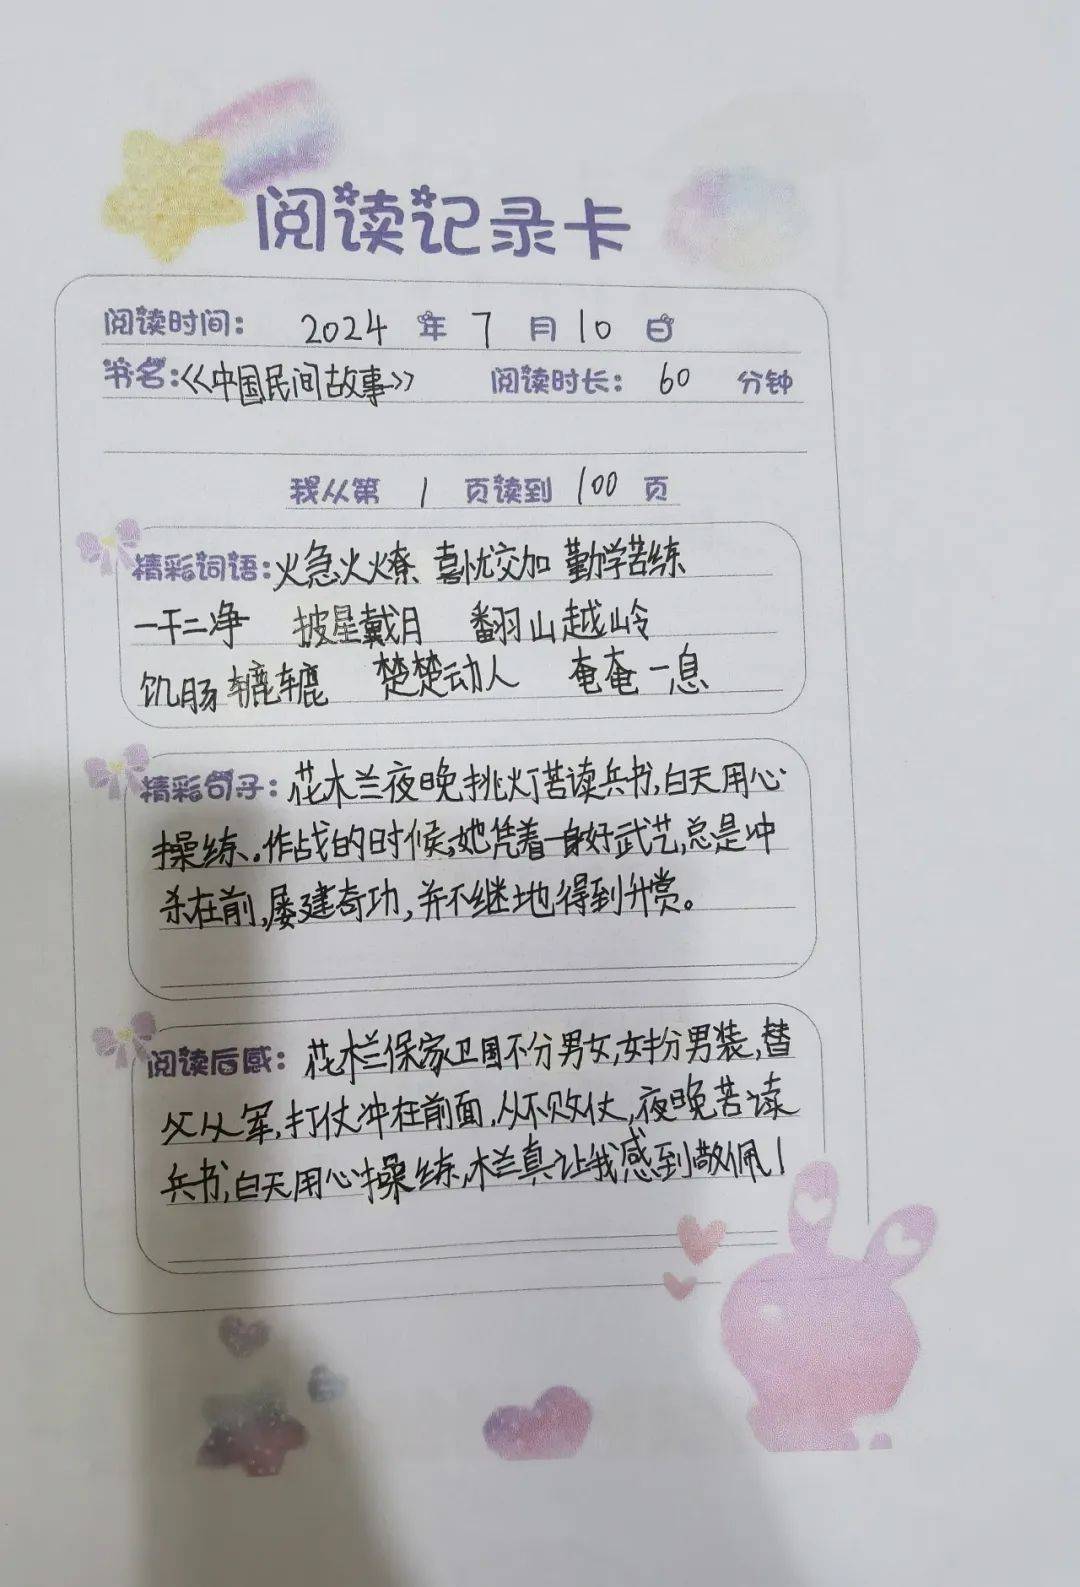 阅读记录卡
阅读时间: 2024 年 7 月 10 日
书名:《中国民间故事》 阅读时长: 60 分钟
我从第 1 页读到 100 页
精彩词语:火急火燎 喜忧交加 勤学苦练
一干二净 披星戴月 翻山越岭
饥肠辘辘 楚楚动人 奄奄一息
精彩句子:花木兰夜晚挑灯苦读兵书,白天用心
操练。作战的时候,她凭着一身好武艺,总是冲
杀在前,屡建奇功,并不继地得到升赏。
阅读后感:花木兰保家卫国不分男女,女扮男装,替
父从军,打仗冲在前面,从不败仗,夜晚苦读
兵书,白天用心操练,木兰真让我感到敬佩!